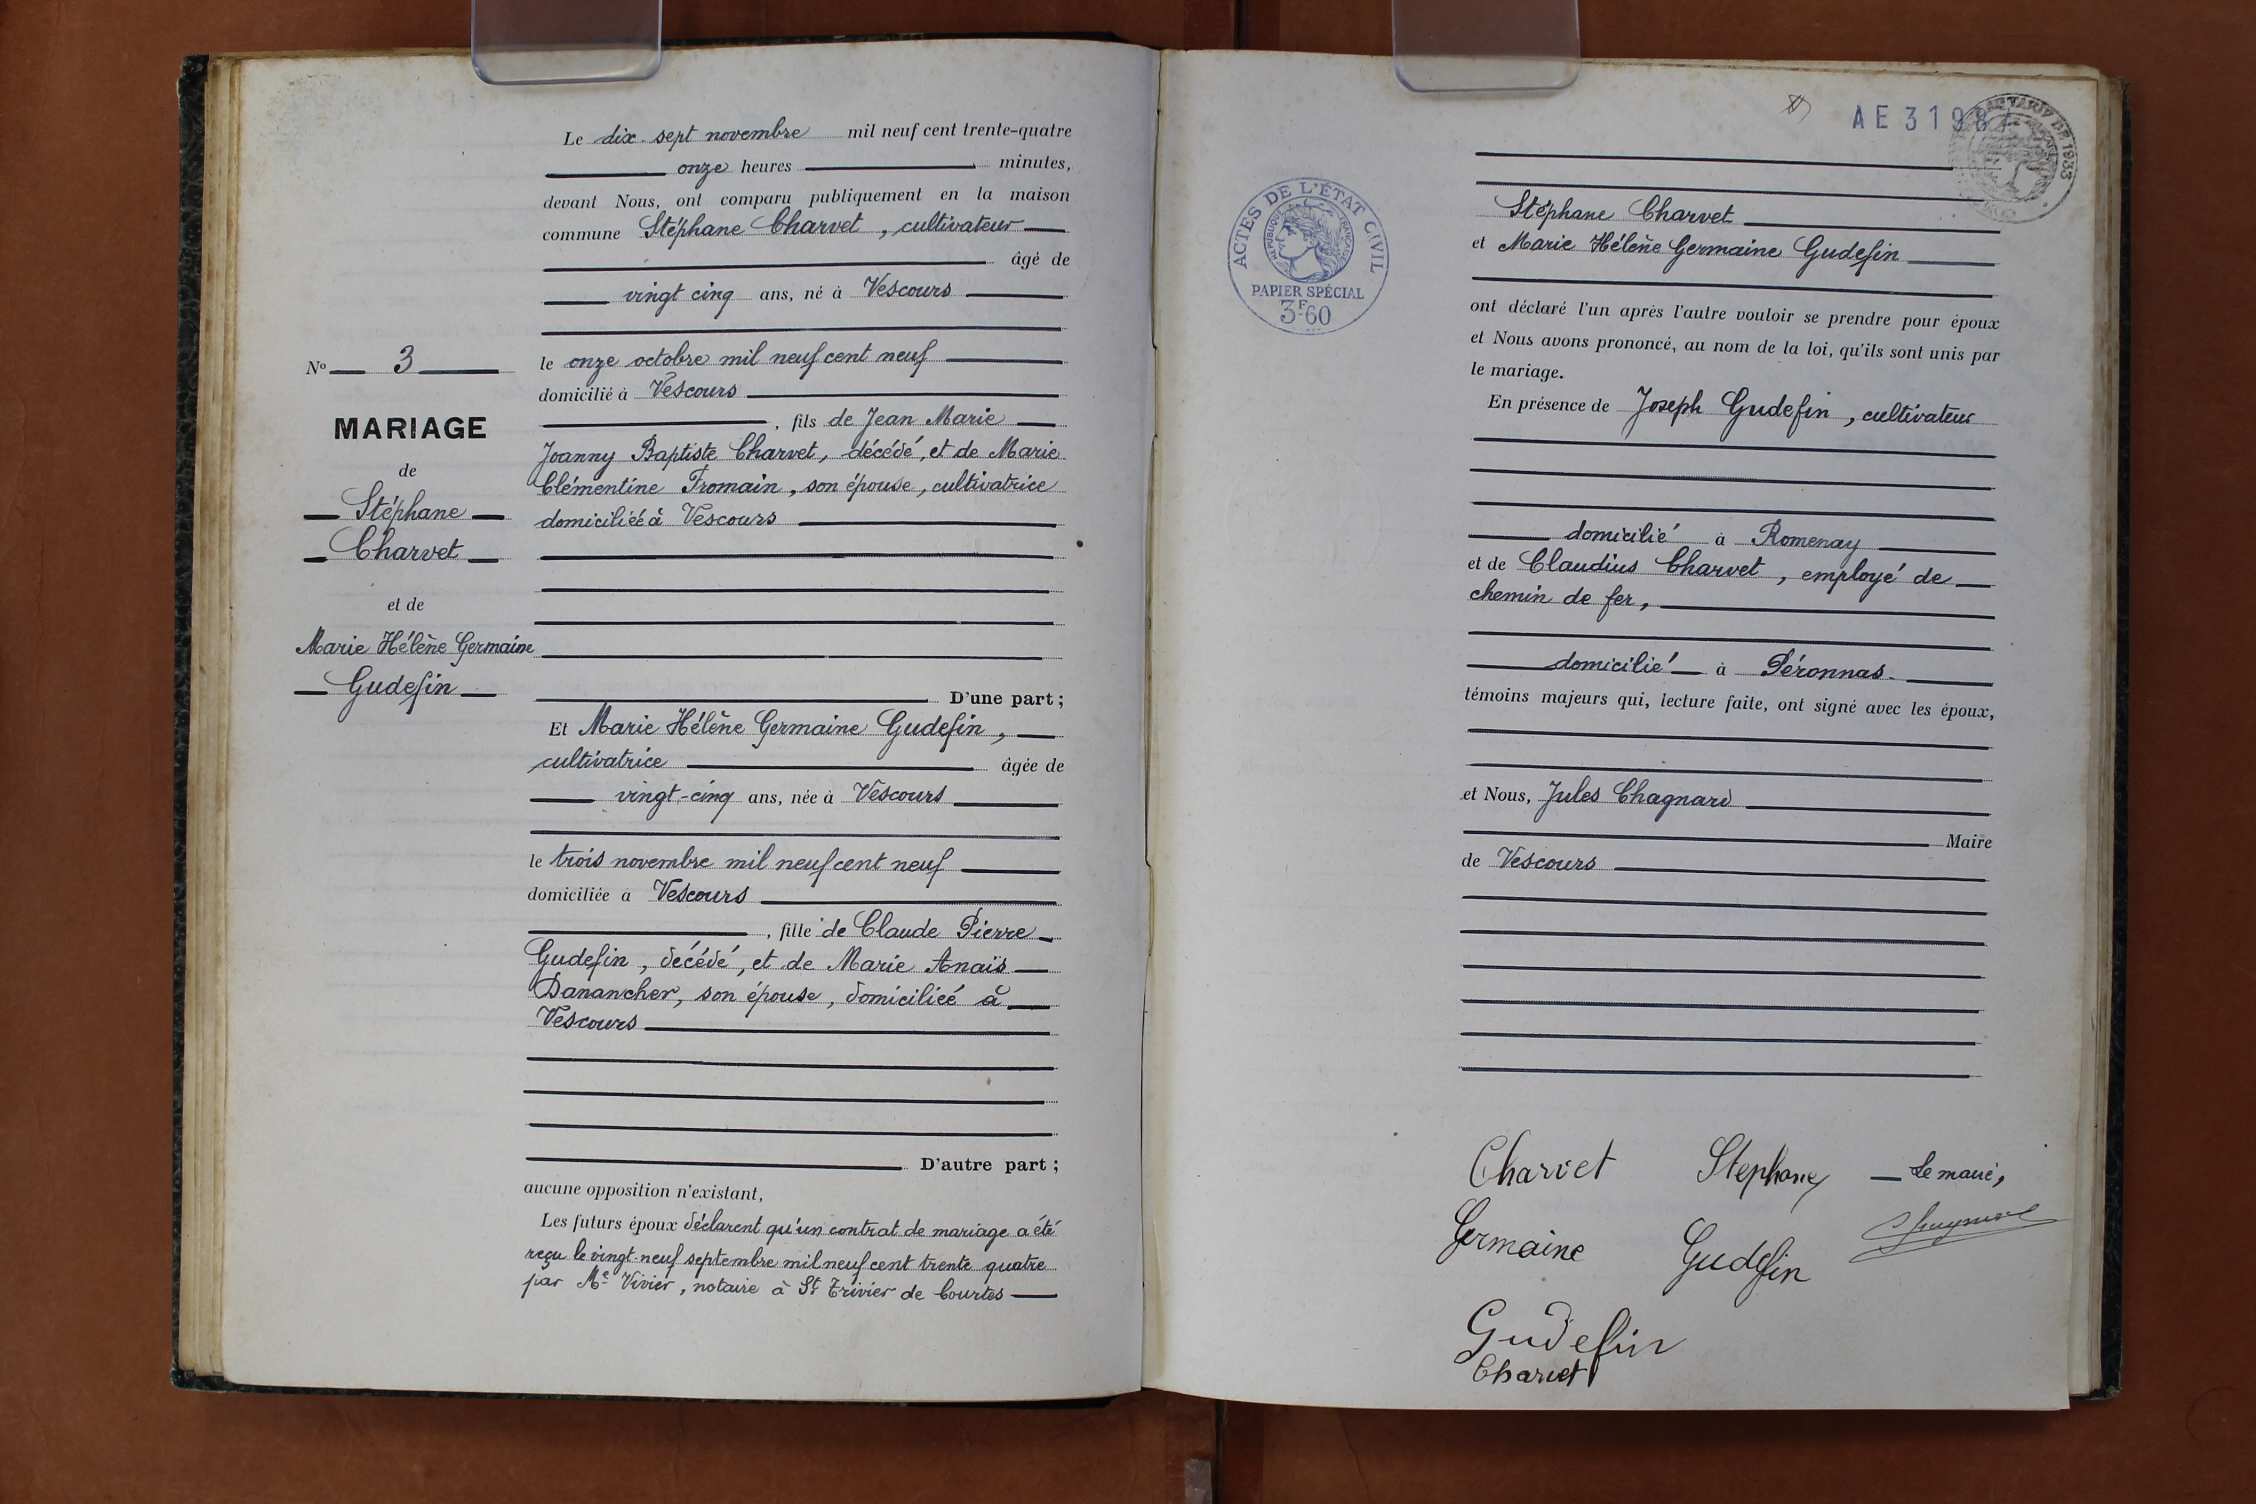 Le dix-sept novembre mil neuf cent trente-quatre
onze heures minutes,
devant Nous, ont comparu publiquement en la maison
commune Stéphane Charvet, cultivateur
âgé de
vingt cinq ans, né à Vescours
le onze octobre mil neuf cent neuf
domicilié à Vescours
, fils de Jean Marie
Joanny Baptiste Charvet, décédé, et de Marie
Clémentine Fromain, son épouse, cultivatrice
domiciliée à Vescours
D'une part ;
Et Marie Hélène Germaine Gudefin,
cultivatrice âgée de
vingt-cinq ans, née à Vescours
le trois novembre mil neuf cent neuf
domiciliée à Vescours
, fille de Claude Pierre
Gudefin, décédé, et de Marie Anaïs
Danancher, son épouse, domiciliée à
Vescours
D'autre part ;
aucune opposition n'existant,
Les futurs époux déclarent qu'un contrat de mariage a été
reçu le vingt-neuf septembre mil neuf cent trente quatre
par Me Vivier, notaire à St Trivier de Courtes
No 3
MARIAGE
de
Stéphane
Charvet
et de
Marie Hélène Germaine
Gudefin
AE 319
DE 1933
ACTES DE L'ÉTAT CIVIL
RÉPUBLIQUE FRANÇAISE
PAPIER SPÉCIAL
3F60
Stéphane Charvet
et Marie Hélène Germaine Gudefin
ont déclaré l'un après l'autre vouloir se prendre pour époux
et Nous avons prononcé, au nom de la loi, qu'ils sont unis par
le mariage.
En présence de Joseph Gudefin, cultivateur
domicilié à Romenay
et de Claudius Charvet, employé de
chemin de fer,
domicilié à Péronnas
témoins majeurs qui, lecture faite, ont signé avec les époux,
et Nous, Jules Chagnard
Maire
de Vescours
Charvet Stephane Le maire,
Germaine Gudefin
Gudefin
Charvet